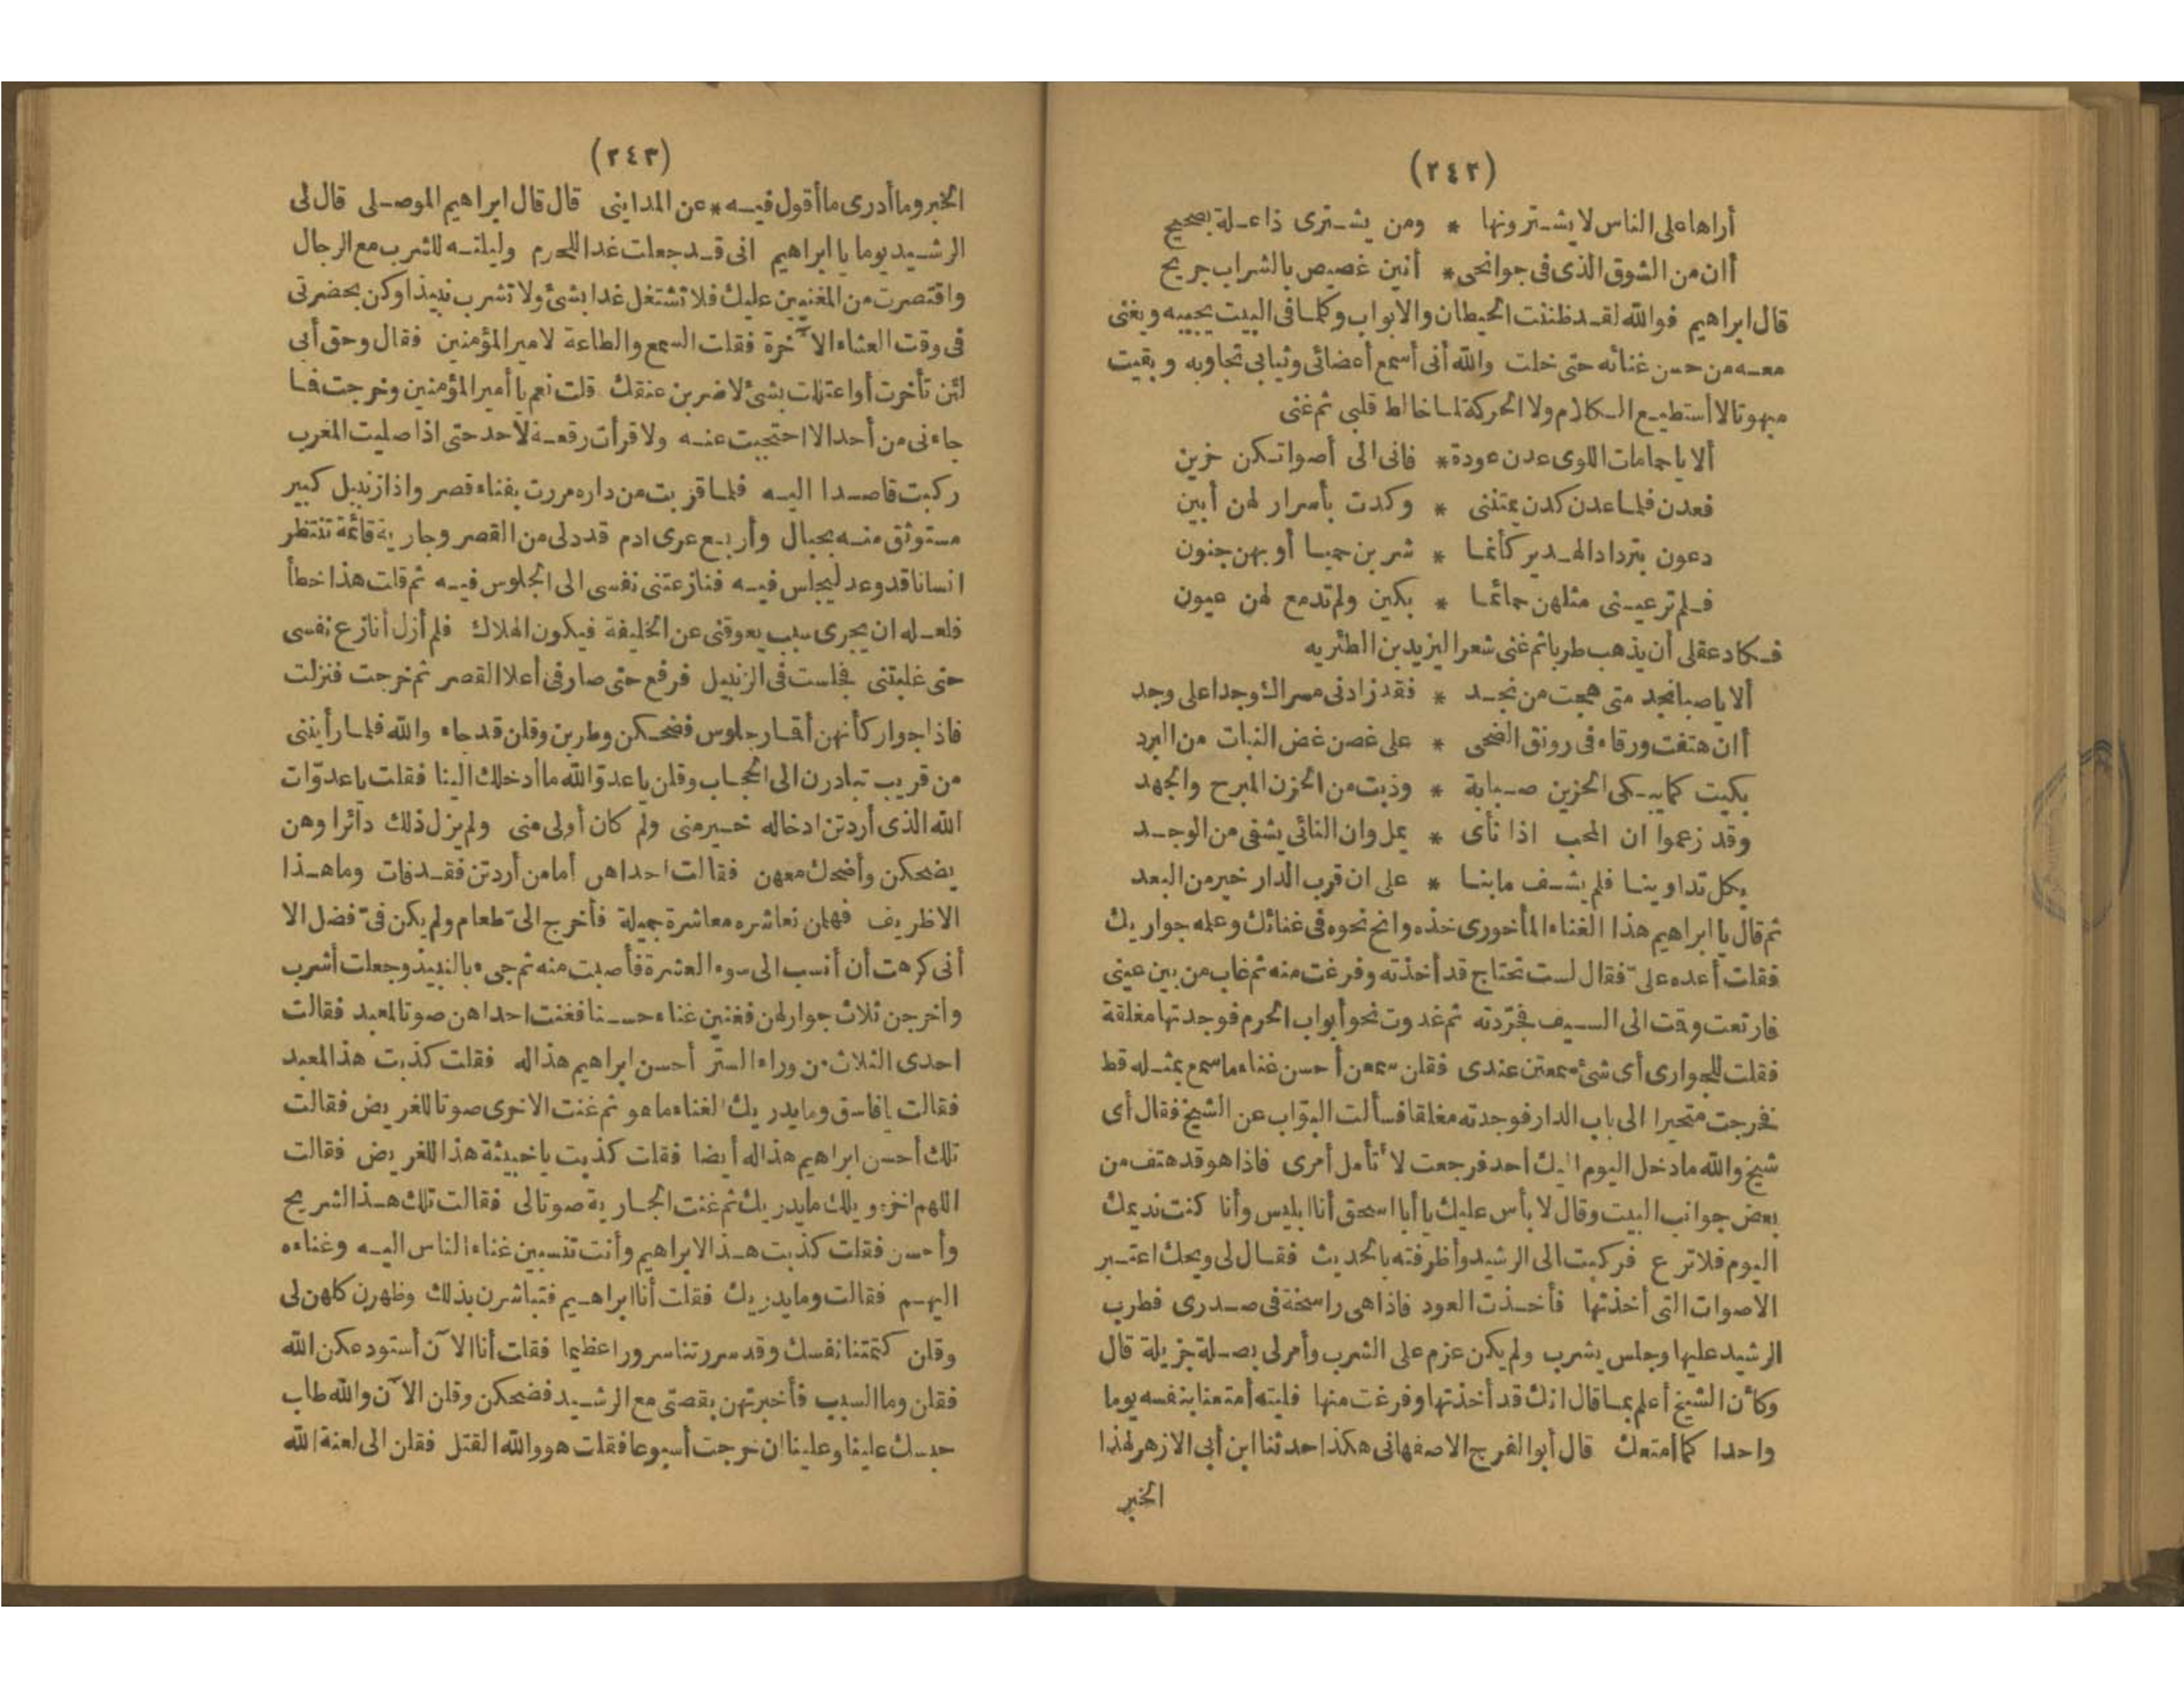 (٢٤٢)
أراها على الناس لا يشترونها * ومن يشترى ذا علة بصحيح
أان من الشوق الذى فى جوانحى * أنين غصيص بالشراب جريح
قال ابراهيم فوالله لقد ظننت الحيطان والابواب وكلما فى البيت يجيبه ويغنى
معه من حسن غنائه حتى خلت والله أنى أسمع أعضائى وثيابى تجاوبه وبقيت
مبهوتا لا أستطيع الكلام ولا الحركة لما خالط قلبى ثم غنى
ألا يا حمامات اللوى عدن عودة * فانى الى أصواتكن حزين
فعدن فلما عدن كدن يمتننى * وكدت بأسرار لهن أبين
دعون بترداد الهدير كأنما * شربن حميا أو بهن جنون
فلم تر عينى مثلهن حمائما * بكين ولم تدمع لهن عيون
فكاد عقلى أن يذهب طربا ثم غنى شعرا ليزيد بن الطثريه
ألا يا صبا نجد متى هجت من نجد * فقد زادنى مسراك وجدا على وجد
أان هتفت ورقاء فى رونق الضحى * على غصن غض النبات من البرد
بكيت كما يبكى الحزين صبابة * وذبت من الحزن المبرح والجهد
وقد زعموا ان المحب اذا نأى * يمل وان النائى يشفى من الوجد
بكل تداوينا فلم يشف ما بنا * على ان قرب الدار خير من البعد
ثم قال يا ابراهيم هذا الغناء الماخورى خذه وانح نحوه فى غنائك وعلمه جواريك
فقلت أعده علىّ فقال لست تحتاج قد أخذته وفرغت منه ثم غاب من بين عينى
فارتعت وقمت الى السيف فجرّدته ثم غدوت نحو أبواب الحرم فوجدتها مغلقة
فقلت للجوارى أى شئ سمعتن عندى فقلن سمعن أحسن غناء ما سمع بمثله قط
فخرجت متحيرا الى باب الدار فوجدته مغلقا فسألت البوّاب عن الشيخ فقال أى
شيخ والله ما دخل اليوم اليك أحد فرجعت لا تأمل أمرى فاذا هو قد هتف من
بعض جوانب البيت وقال لا بأس عليك يا أبا اسحق أنا ابليس وأنا كنت نديمك
اليوم فلا ترع فركبت الى الرشيد وأظرفته بالحديث فقال لى ويحك اعتبر
الاصوات التى أخذتها فأخذت العود فاذا هى راسخة فى صدرى فطرب
الرشيد عليها وجلس يشرب ولم يكن عزم على الشرب وأمر لى بصلة جزيلة قال
وكأن الشيخ أعلم بما قال انك قد أخذتها وفرغت منها فليته أمتعنا بنفسه يوما
واحدا كما أمتعك قال أبو الفرج الاصفهانى هكذا حدثنا ابن أبى الازهر لهذا
الخبر
(٢٤٣)
الخبر وما أدرى ما أقول فيه * عن المداينى قال قال ابراهيم الموصلى قال لى
الرشيد يوما يا ابراهيم انى قد جعلت غدا للحرم وليلته للشرب مع الرجال
واقتصرت من المغنيين عليك فلا تشتغل غدا بشئ ولا تشرب نبيذا وكن بحضرتى
فى وقت العشاء الآخرة فقلت السمع والطاعة لامير المؤمنين فقال وحق أبى
لئن تأخرت أو اعتللت بشئ لاضربن عنقك قلت نعم يا أمير المؤمنين وخرجت فما
جاءنى من أحد الا احتجبت عنه ولا قرأت رقعة لأحد حتى اذا صليت المغرب
ركبت قاصدا اليه فلما قربت من داره مررت بفناء قصر واذا زنبيل كبير
مستوثق منه بحبال وأربع عرى ادم قد دلى من القصر وجارية قائمة تنتظر
انسانا قد وعد ليجلس فيه فنازعتنى نفسى الى الجلوس فيه ثم قلت هذا خطأ
فلعله ان يجرى سبب يعوقنى عن الخليفة فيكون الهلاك فلم أزل أنازع نفسى
حتى غلبتنى فجلست فى الزنبيل فرفع حتى صار فى أعلا القصر ثم خرجت فنزلت
فاذا جوار كأنهن أقمار جلوس فضحكن وطربن وقلن قد جاء والله فلما رأيننى
من قريب تبادرن الى الحجاب وقلن يا عدوّ الله ما أدخلك الينا فقلت يا عدوّات
الله الذى أردتن ادخاله خير منى ولم كان أولى منى ولم يزل ذلك دائرا وهن
يضحكن وأضحك معهن فقالت احداهن أما من أردتن فقد فات وما هذا
الا ظريف فهلمن نعاشره معاشرة جميلة فأخرج الىّ طعام ولم يكن فىّ فضل الا
أنى كرهت أن أنسب الى سوء العشرة فأصبت منه ثم جىء بالنبيذ وجعلت أشرب
وأخرجن ثلاث جوار لهن فغنين غناء حسنا فغنت احداهن صوتا لمعبد فقالت
احدى الثلاث من وراء الستر أحسن ابراهيم هذا له فقلت كذبت هذا لمعبد
فقالت يا فاسق وما يدريك الغناء ما هو ثم غنت الاخرى صوتا للغريض فقالت
تلك أحسن ابراهيم هذا له أيضا فقلت كذبت يا خبيثة هذا للغريض فقالت
اللهم اخزه ويلك ما يدريك ثم غنت الجارية صوتا لى فقالت تلك هذا لشريح
وأحسن فقلت كذبت هذا لابراهيم وأنت تنسبين غناء الناس اليه وغناءه
اليهم فقالت وما يدريك فقلت أنا ابراهيم فتباشرن بذلك وظهرن كلهن لى
وقلن كتمتنا نفسك وقد سررتنا سرورا عظيما فقلت أنا الآن أستودعكن الله
فقلن وما السبب فأخبرتهن بقصتى مع الرشيد فضحكن وقلن الآن والله طاب
حبسك علينا وعلينا ان خرجت أسبوعا فقلت هو والله القتل فقلن الى لعنة الله